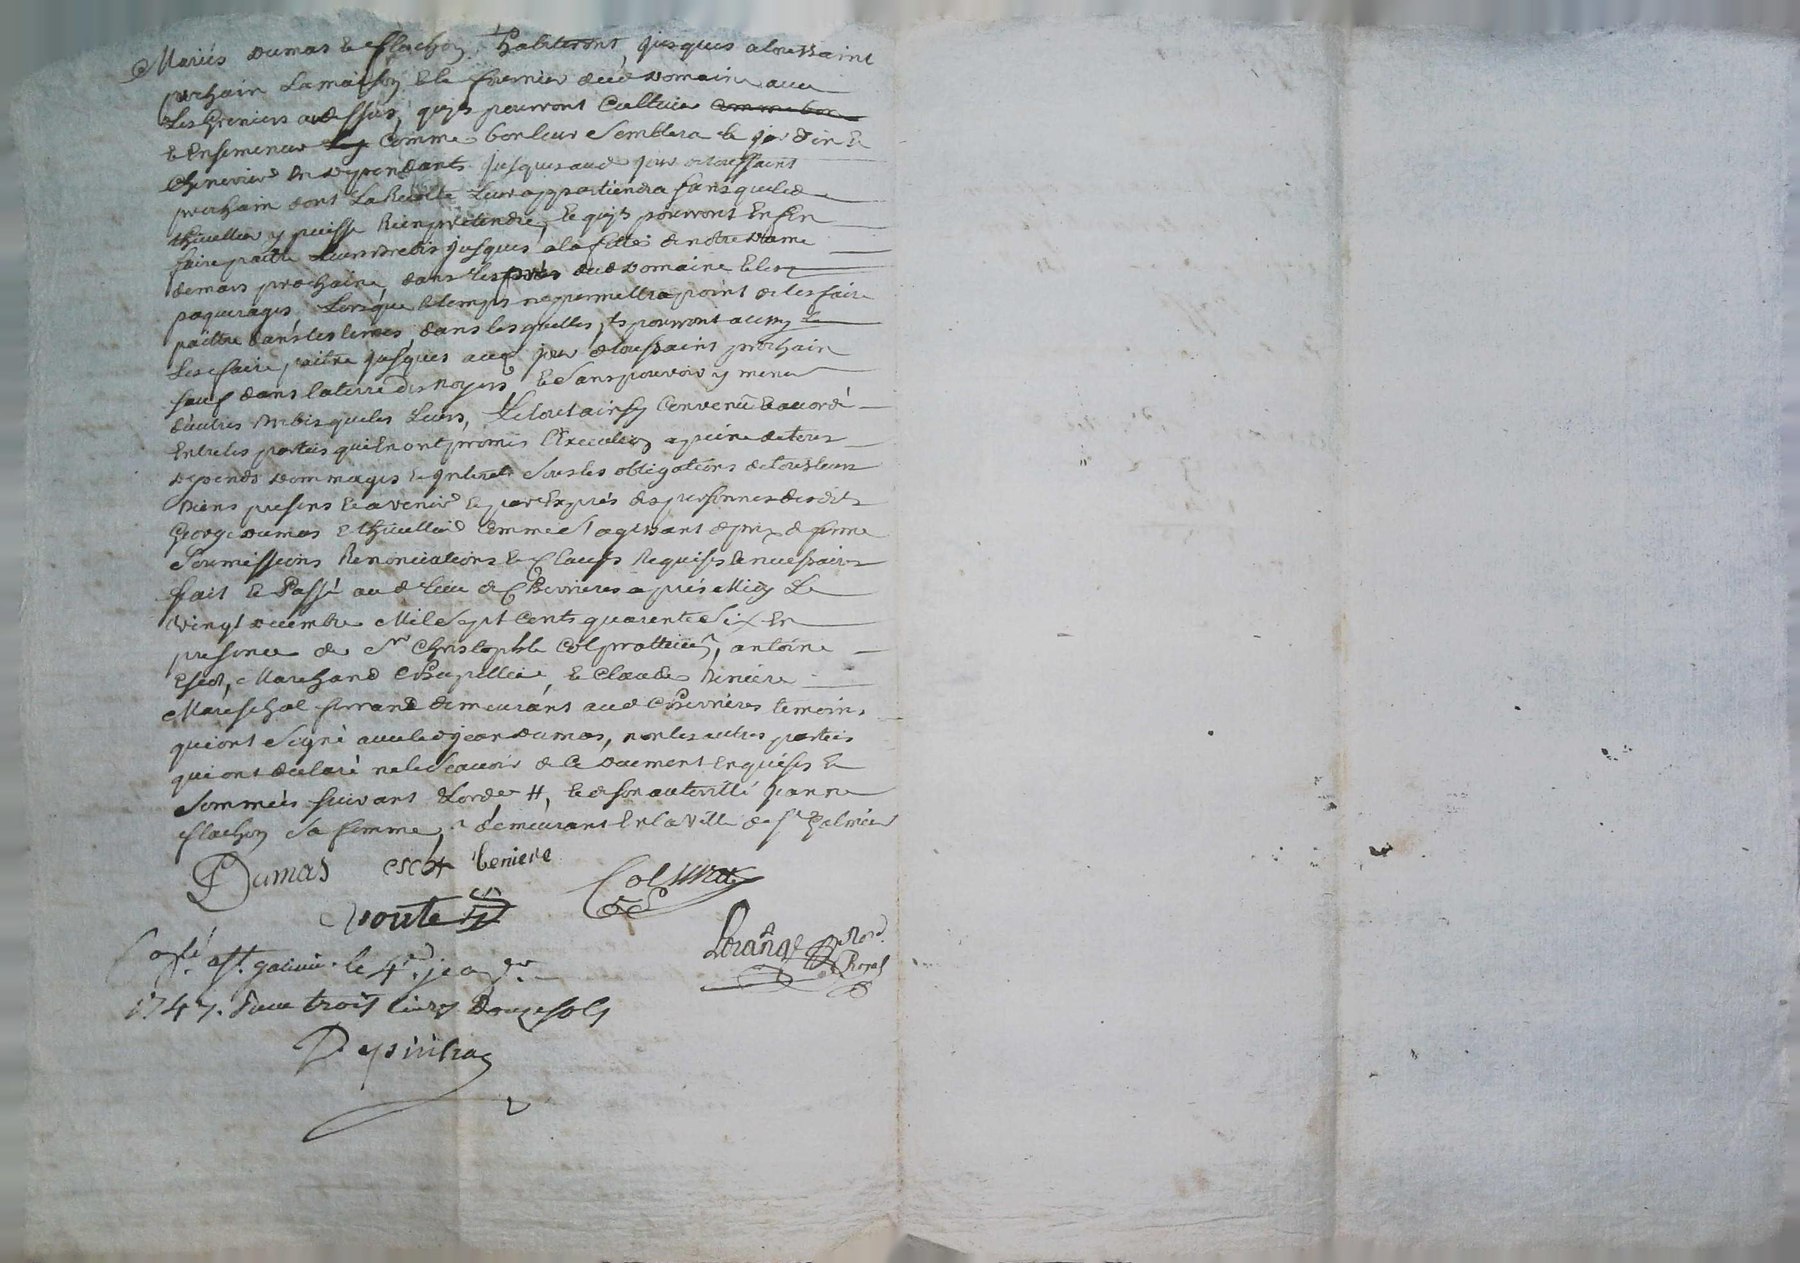 Mariés dumas et flachon. habiteront, jusques a toussaint
prochain La maison et le fournier dud domaine avec
Les Greniers au dessus, quils pourront Cultiver comme bon
et Ensemencer Comme bon leur Semblera le jardin et
Chenevier En dependants jusques aud jour de toussaint
prochain dont La Recolte Leur appartiendra sans que led
thivellier y puisse Rien prétendre, et quils pourront Enfin
faire paitre Leurs brebis jusques a la fette de notre dame
de mars prochaine, dans les prés dud domaine et les
paquerages, Lorsque le temps ne permettra point de les faire
paître dans les terres, dans lesquelles, ils pourront
Les faire paitre jusques aud jour de toussaint prochain
sauf dans la terre des noyers, et Sans pouvoir y mener
d'autres brebis que les Leurs, Le tout ainsy Convenu et accordé
Entre les parties qui En ont promis l'Execution a peine de tous
depends dommages et interets Sous les obligations de tous leurs
biens presens et a venir et par Exprés des personnes desdits
George dumas et thivellier Comme S'agissant de prix de ferme
Soumissions Renonciations et Clauses Requises et necessaires
fait et Passé aud lieu de Chevrieres aprés Midy Le
vingt decembre Mil Sept Cents quarente Six En
presence de Sr Christophle Colpratticien, antoine
Escot, Marchand Chapellier, et Claude beniere
Mareschal ferrand demeurant aud Chevrieres temoins
qui ont Signé avec led jean dumas, non les autres parties
qui ont declaré ne le Scavoir de Ce duement Enquises et
Sommées suivant L'ordce #, et de son autorité jeanne
flachon Sa femme, demeurant En la Ville de St Galmier
Dumas escot beniere
Colpratt
Lorange Nore Royal
Collé a St. galmier le 4e. janer
1747. Reçu trois livres Douze sols